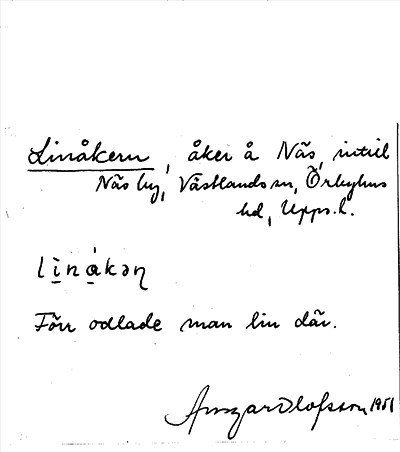 Linåkern, åker å Näs, intill
Näs by, Västlands sn, Örbyhus
hd, Upps. l.
lìnákəɳ
Förr odlade man lin där.
Ansgar Olofsson 1951